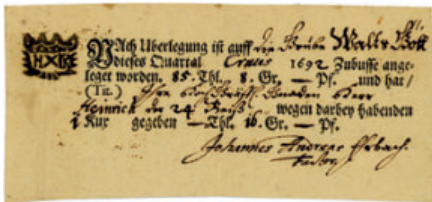 HXR
Nach Uberlegung ist auff die Grube Walts Gott
dieses Quartal Crucis 1692 Zubusse ange-
leget worden. 85. Thl. 8. Gr. — Pf. und hat /
(Tit.) Ihro Hochgräfl. Gnaden Herr
Heinrich der 24 Reuß wegen darbey habenden
Kux gegeben — Thl. 16. Gr. — Pf.
Johannes Andreas Ehrbach.